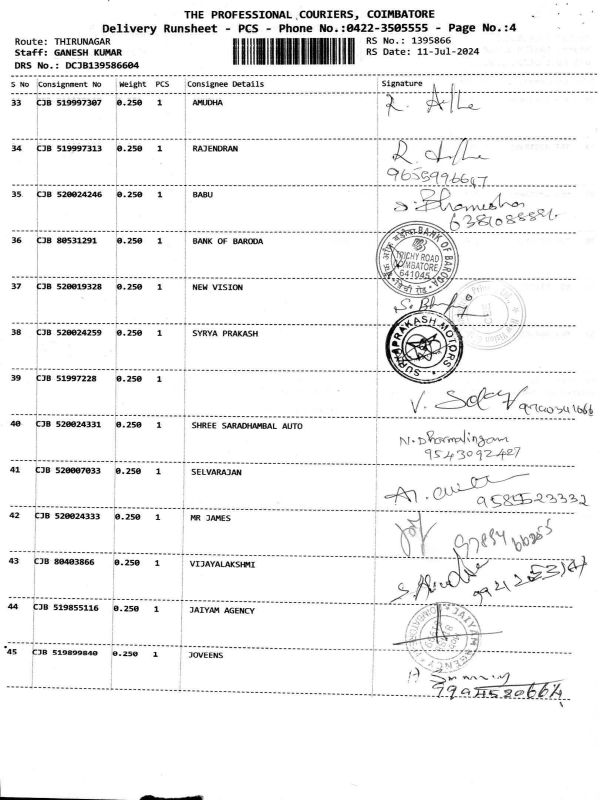 THE PROFESSIONAL COURIERS, COIMBATORE
Delivery Runsheet - PCS - Phone No.:0422-3505555 - Page No.:4
Route: THIRUNAGAR
RS No.: 1395866
Staff: GANESH KUMAR
RS Date: 11-Jul-2024
DRS No.: DCJB139586604
S No Consignment No Weight PCS Consignee Details Signature
33 CJB 519997307 0.250 1 AMUDHA
R.
34 CJB 519997313 0.250 1 RAJENDRAN
R
35 CJB 520024246 0.250 1 BABU
36 CJB 80531291 0.250 1 BANK OF BARODA
BANK OF BARODA
TRICHY ROAD
COIMBATORE
641045
37 CJB 520019328 0.250 1 NEW VISION
38 CJB 520024259 0.250 1 SYRYA PRAKASH
SURYAPRAKASH MOTORS
39 CJB 51997228 0.250 1
V.
40 CJB 520024331 0.250 1 SHREE SARADHAMBAL AUTO
N. Dharmalingam
9543092427
41 CJB 520007033 0.250 1 SELVARAJAN
9585523332
42 CJB 520024333 0.250 1 MR JAMES
43 CJB 80403866 0.250 1 VIJAYALAKSHMI
44 CJB 519855116 0.250 1 JAIYAM AGENCY
JAIYAM AGENCY
45 CJB 519899840 0.250 1 JOVEENS